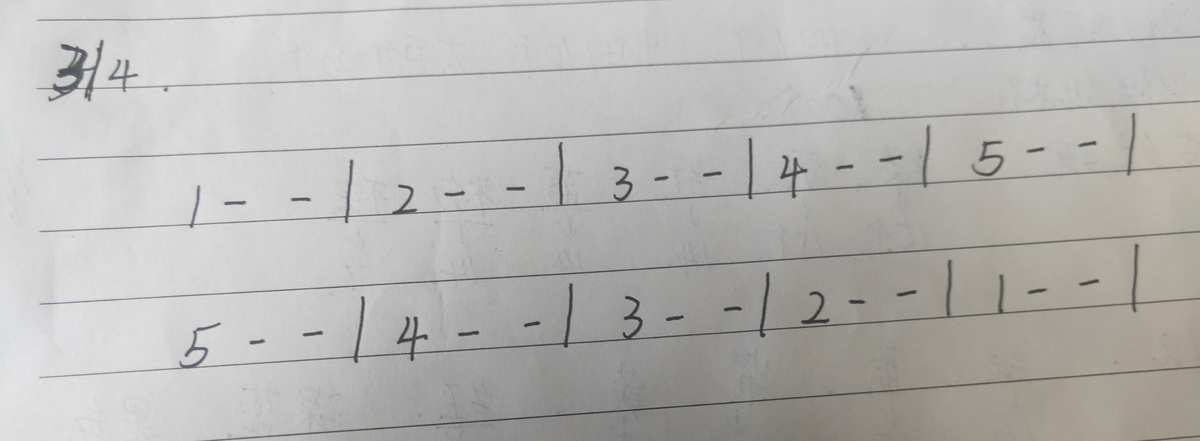 3/4.
1 - - | 2 - - | 3 - - | 4 - - | 5 - - |
5 - - | 4 - - | 3 - - | 2 - - | 1 - - |